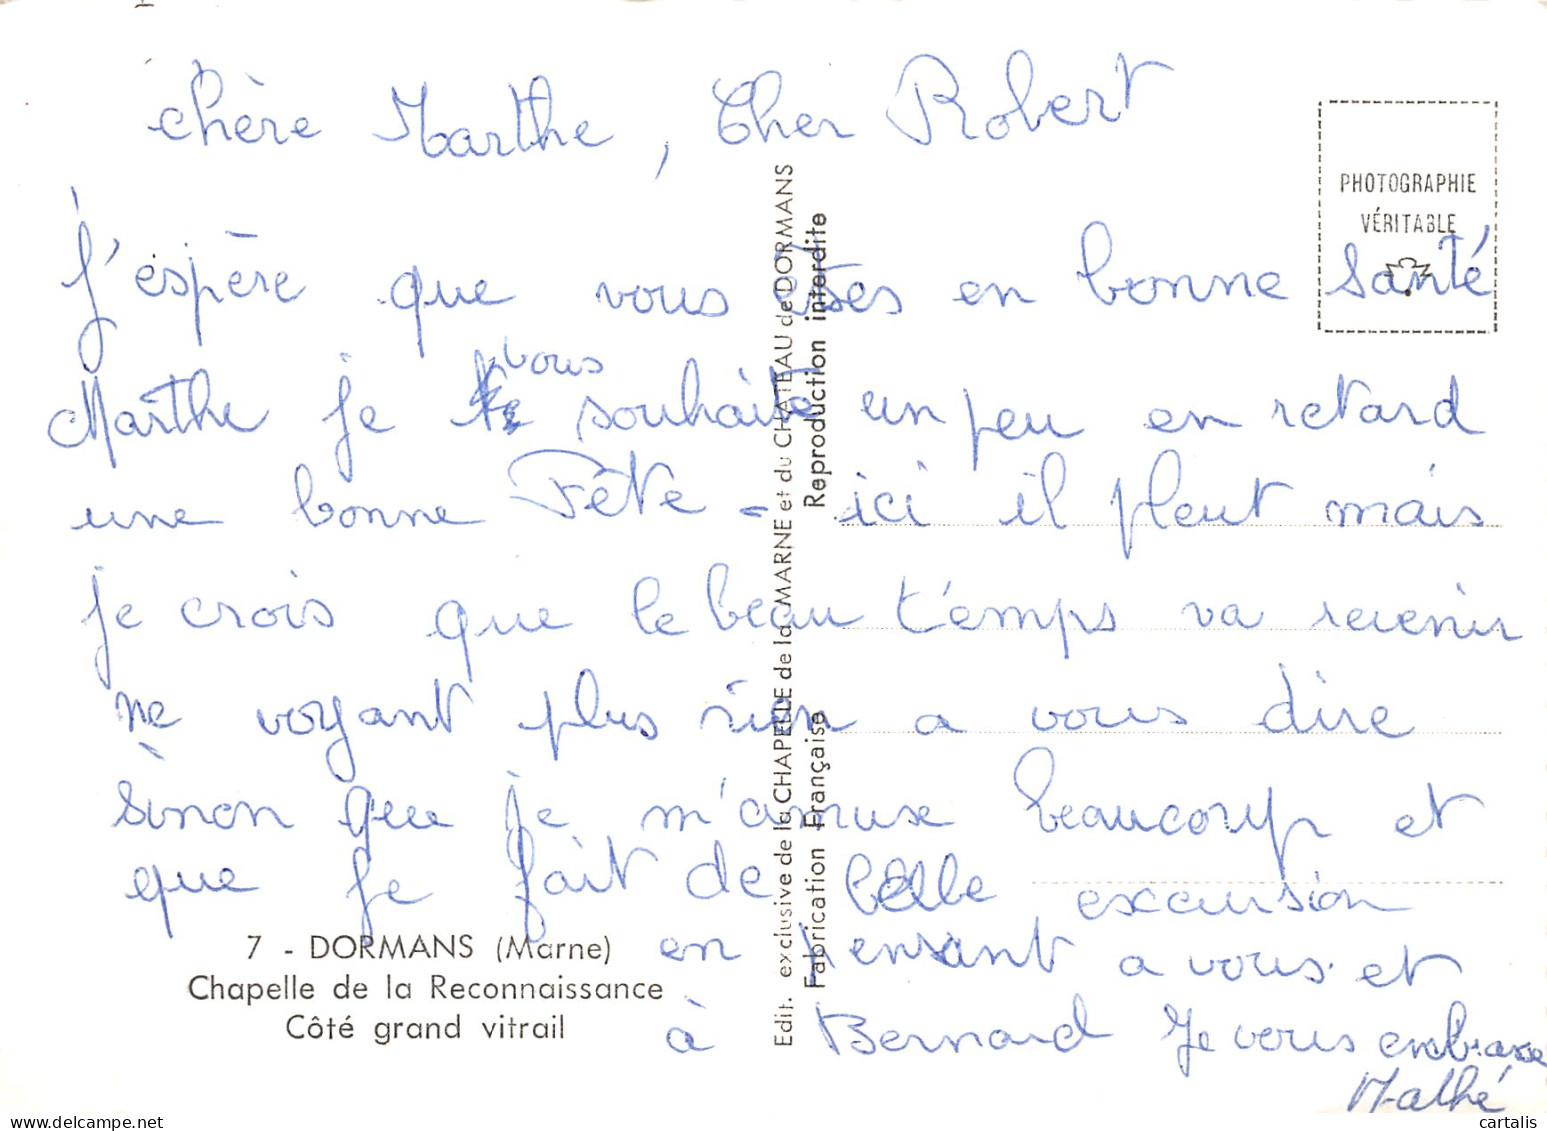 chère Marthe, Cher Robert
PHOTOGRAPHIE
VÉRITABLE
j'espère que vous êtes en bonne santé
vous
Marthe je te souhaite un peu en retard
une bonne Fête - ici il pleut mais
je crois que le beau temps va revenir
ne voyant plus rien a vous dire
sinon que je m'amuse beaucoup et
que je fait de belle excursion
en pensant a vous et
à Bernard Je vous embrasse
Mathé
7 - DORMANS (Marne)
Chapelle de la Reconnaissance
Côté grand vitrail
Edit. exclusive de la CHAPELLE de la MARNE et du CHATEAU de DORMANS
Fabrication Française Reproduction interdite
cartalis
delcampe.net